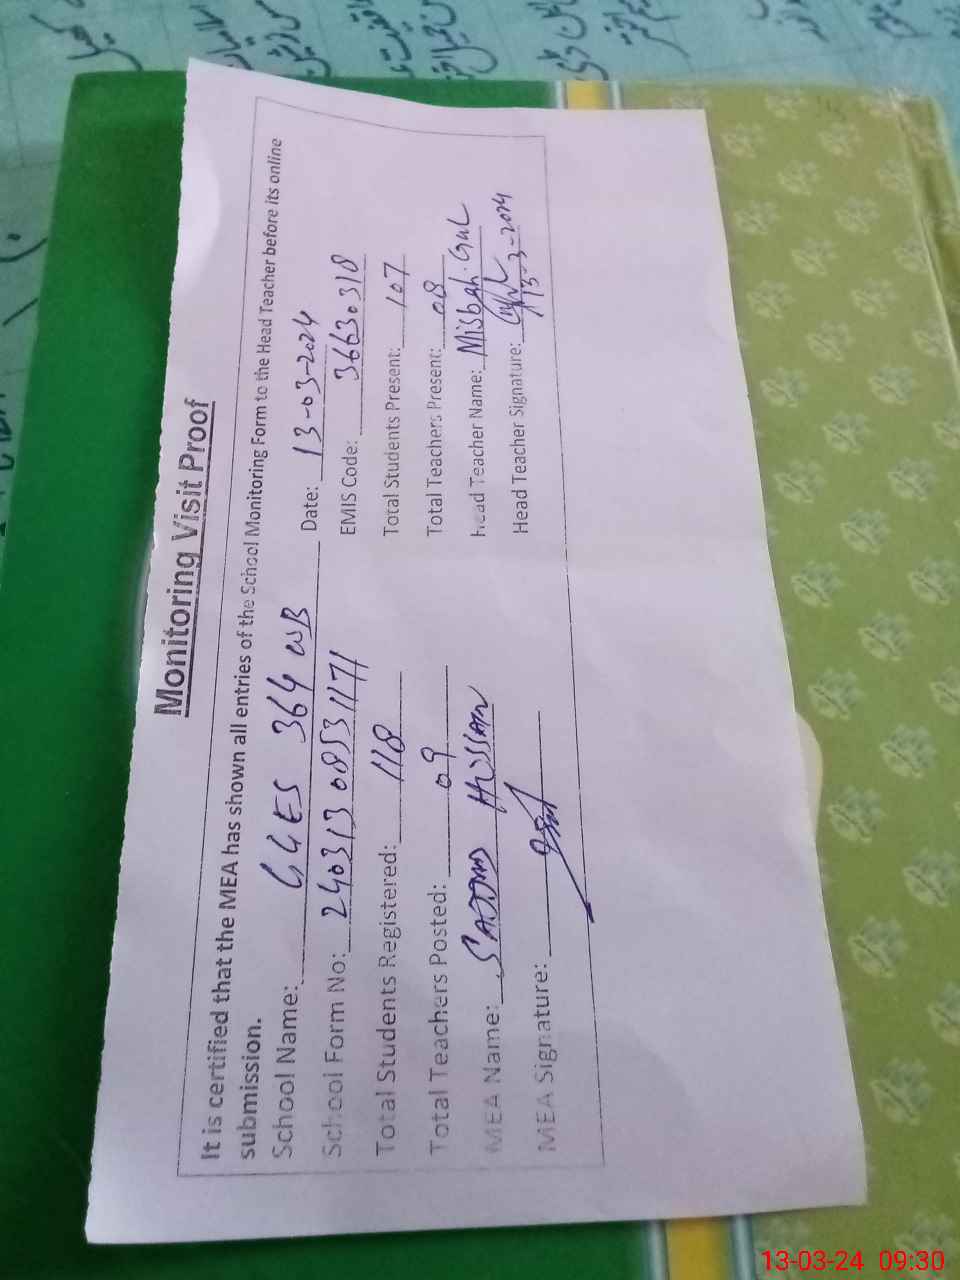 Monitoring Visit Proof
It is certified that the MEA has shown all entries of the School Monitoring Form to the Head Teacher before its online
submission.
School Name: GGES 364 WB Date: 13-03-2024
School Form No: 240313 0853 1171 EMIS Code: 36630318
Total Students Registered: 118 Total Students Present: 107
Total Teachers Posted: 09 Total Teachers Present: 08
MEA Name: Hussain Head Teacher Name: Misbah Gul
MEA Signature: Head Teacher Signature:
13-3-2024
13-03-24 09:30